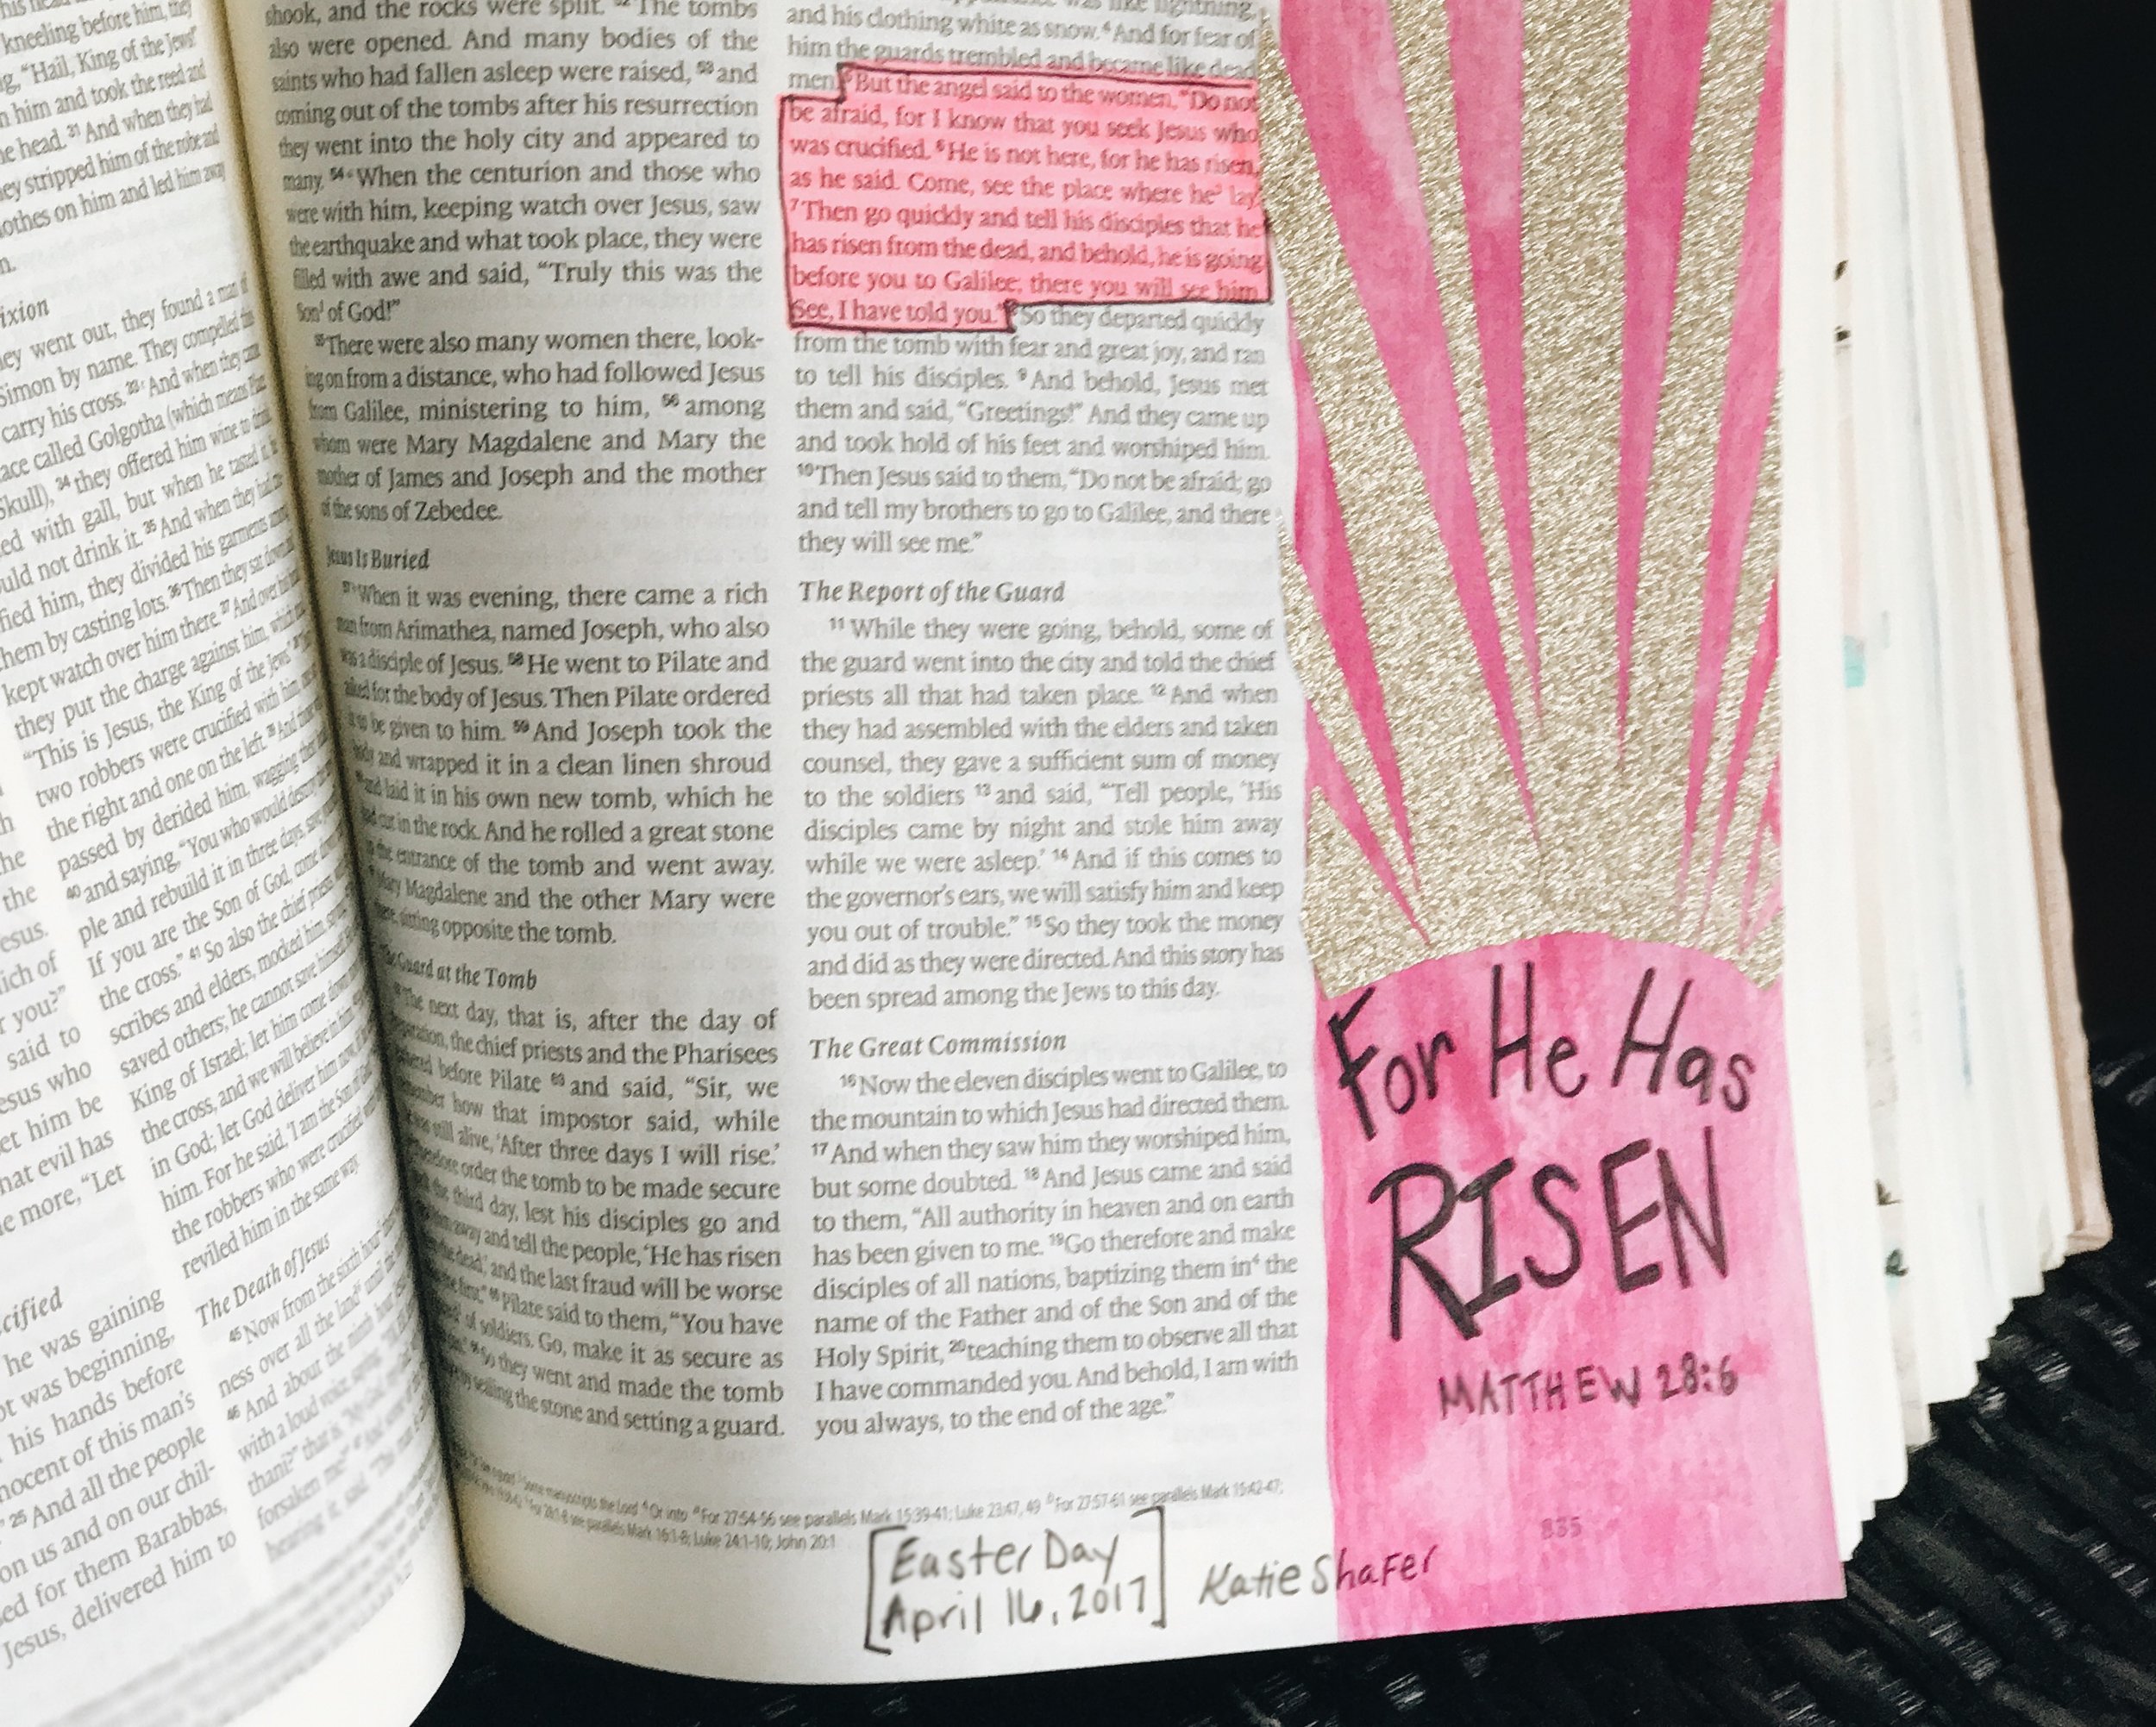 kneeling before him, they
"Hail, King of the Jews!"
him and took the reed and
head. 31 And when they had
they stripped him of the robe and
clothes on him and led him away
ixion
they went out, they found a man of
Simon by name. They compelled this
carry his cross. 33 And when they came
place called Golgotha (which means Place
Skull), 34 they offered him wine to drink,
mixed with gall, but when he tasted it, he
would not drink it. 35 And when they had
fied him, they divided his garments among
them by casting lots. 36 Then they sat down
kept watch over him there. 37 And over his head
they put the charge against him, which read,
"This is Jesus, the King of the Jews."
two robbers were crucified with him, one on
the right and one on the left. 39 And those who
passed by derided him, wagging their
40 and saying, "You who would destroy the
ple and rebuild it in three days, save
If you are the Son of God, come down
the cross." 41 So also the chief priests, with
scribes and elders, mocked him, saying,
saved others; he cannot save himself.
King of Israel; let him come down now
the cross, and we will believe in him.
in God; let God deliver him now, if he
him. For he said, 'I am the Son of God.'"
the robbers who were crucified with
reviled him in the same way.
The Death of Jesus
45 Now from the sixth hour there
ness over all the land until the
46 And about the ninth hour Jesus
with a loud voice, saying,
thani?" that is, "My God,
forsaken me?"
hearing it, said, "This man
the
esus.
ich of
you?"
said to
esus who
let him be
hat evil has
more, "Let
cified
he was gaining
was beginning,
his hands before
nocent of this man's
25 And all the people
on us and on our chil-
for them Barabbas,
Jesus, delivered him to
shook, and the rocks were split. 52 The tombs
also were opened. And many bodies of the
saints who had fallen asleep were raised, 53 and
coming out of the tombs after his resurrection
they went into the holy city and appeared to
many. 54 When the centurion and those who
were with him, keeping watch over Jesus, saw
the earthquake and what took place, they were
filled with awe and said, "Truly this was the
Son of God!"
55 There were also many women there, look-
ing on from a distance, who had followed Jesus
from Galilee, ministering to him, 56 among
whom were Mary Magdalene and Mary the
mother of James and Joseph and the mother
of the sons of Zebedee.
Jesus Is Buried
57 When it was evening, there came a rich
man from Arimathea, named Joseph, who also
was a disciple of Jesus. 58 He went to Pilate and
asked for the body of Jesus. Then Pilate ordered
it to be given to him. 59 And Joseph took the
body and wrapped it in a clean linen shroud
and laid it in his own new tomb, which he
had cut in the rock. And he rolled a great stone
to the entrance of the tomb and went away.
Mary Magdalene and the other Mary were
there, sitting opposite the tomb.
The Guard at the Tomb
The next day, that is, after the day of
Preparation, the chief priests and the Pharisees
gathered before Pilate 63 and said, "Sir, we
remember how that impostor said, while
he was still alive, 'After three days I will rise.'
Therefore order the tomb to be made secure
until the third day, lest his disciples go and
steal him away and tell the people, 'He has risen
from the dead,' and the last fraud will be worse
than the first." 65 Pilate said to them, "You have
a guard of soldiers. Go, make it as secure as
you can." 66 So they went and made the tomb
secure by sealing the stone and setting a guard.
and his clothing white as snow. 4 And for fear of
him the guards trembled and became like dead
men. 5 But the angel said to the women, "Do not
be afraid, for I know that you seek Jesus who
was crucified. 6 He is not here, for he has risen,
as he said. Come, see the place where he lay.
7 Then go quickly and tell his disciples that he
has risen from the dead, and behold, he is going
before you to Galilee; there you will see him.
See, I have told you." 8 So they departed quickly
from the tomb with fear and great joy, and ran
to tell his disciples. 9 And behold, Jesus met
them and said, "Greetings!" And they came up
and took hold of his feet and worshiped him.
10 Then Jesus said to them, "Do not be afraid; go
and tell my brothers to go to Galilee, and there
they will see me."
The Report of the Guard
11 While they were going, behold, some of
the guard went into the city and told the chief
priests all that had taken place. 12 And when
they had assembled with the elders and taken
counsel, they gave a sufficient sum of money
to the soldiers 13 and said, "Tell people, 'His
disciples came by night and stole him away
while we were asleep.' 14 And if this comes to
the governor's ears, we will satisfy him and keep
you out of trouble." 15 So they took the money
and did as they were directed. And this story has
been spread among the Jews to this day.
The Great Commission
16 Now the eleven disciples went to Galilee, to
the mountain to which Jesus had directed them.
17 And when they saw him they worshiped him,
but some doubted. 18 And Jesus came and said
to them, "All authority in heaven and on earth
has been given to me. 19 Go therefore and make
disciples of all nations, baptizing them in the
name of the Father and of the Son and of the
Holy Spirit, 20 teaching them to observe all that
I have commanded you. And behold, I am with
you always, to the end of the age."
some manuscripts the Lord Or into For 27:54-56 see parallels Mark 15:39-41; Luke 23:47, 49 For 27:57-61 see parallels Mark 15:42-47;
For 28:1-8 see parallels Mark 16:1-8; Luke 24:1-10; John 20:1
For He Has
RISEN
MATTHEW 28:6
835
[Easter Day
April 16, 2017]
Katie Shafer